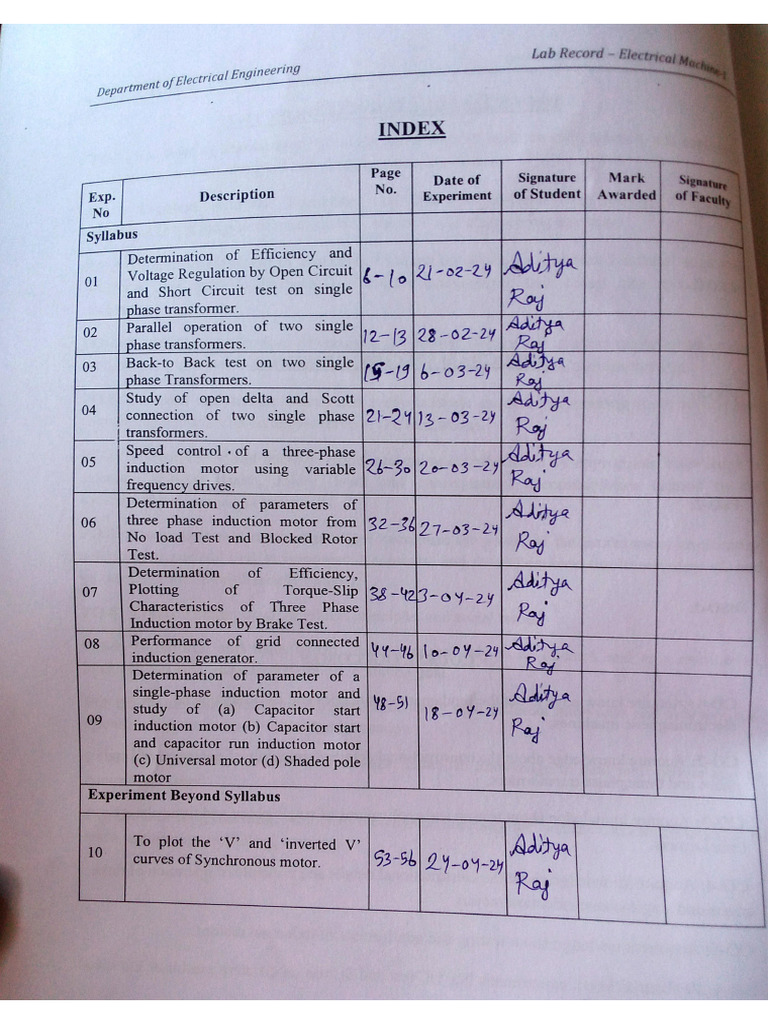 Department of Electrical Engineering
Lab Record – Electrical Machine-1
INDEX
Exp. No
Description
Page No.
Date of Experiment
Signature of Student
Mark Awarded
Signature of Faculty
Syllabus
01
Determination of Efficiency and
Voltage Regulation by Open Circuit
and Short Circuit test on single
phase transformer.
6-10
21-02-24
Aditya
Raj
02
Parallel operation of two single
phase transformers.
12-13
28-02-24
Aditya
Raj
03
Back-to Back test on two single
phase Transformers.
15-19
6-03-24
Aditya
Raj
04
Study of open delta and Scott
connection of two single phase
transformers.
21-24
13-03-24
Aditya
Raj
05
Speed control of a three-phase
induction motor using variable
frequency drives.
26-30
20-03-24
Aditya
Raj
06
Determination of parameters of
three phase induction motor from
No load Test and Blocked Rotor
Test.
32-36
27-03-24
Aditya
Raj
07
Determination of Efficiency,
Plotting of Torque-Slip
Characteristics of Three Phase
Induction motor by Brake Test.
38-42
3-04-24
Aditya
Raj
08
Performance of grid connected
induction generator.
44-46
10-04-24
Aditya
Raj
09
Determination of parameter of a
single-phase induction motor and
study of (a) Capacitor start
induction motor (b) Capacitor start
and capacitor run induction motor
(c) Universal motor (d) Shaded pole
motor
48-51
18-04-24
Aditya
Raj
Experiment Beyond Syllabus
10
To plot the ‘V’ and ‘inverted V’
curves of Synchronous motor.
53-56
24-04-24
Aditya
Raj